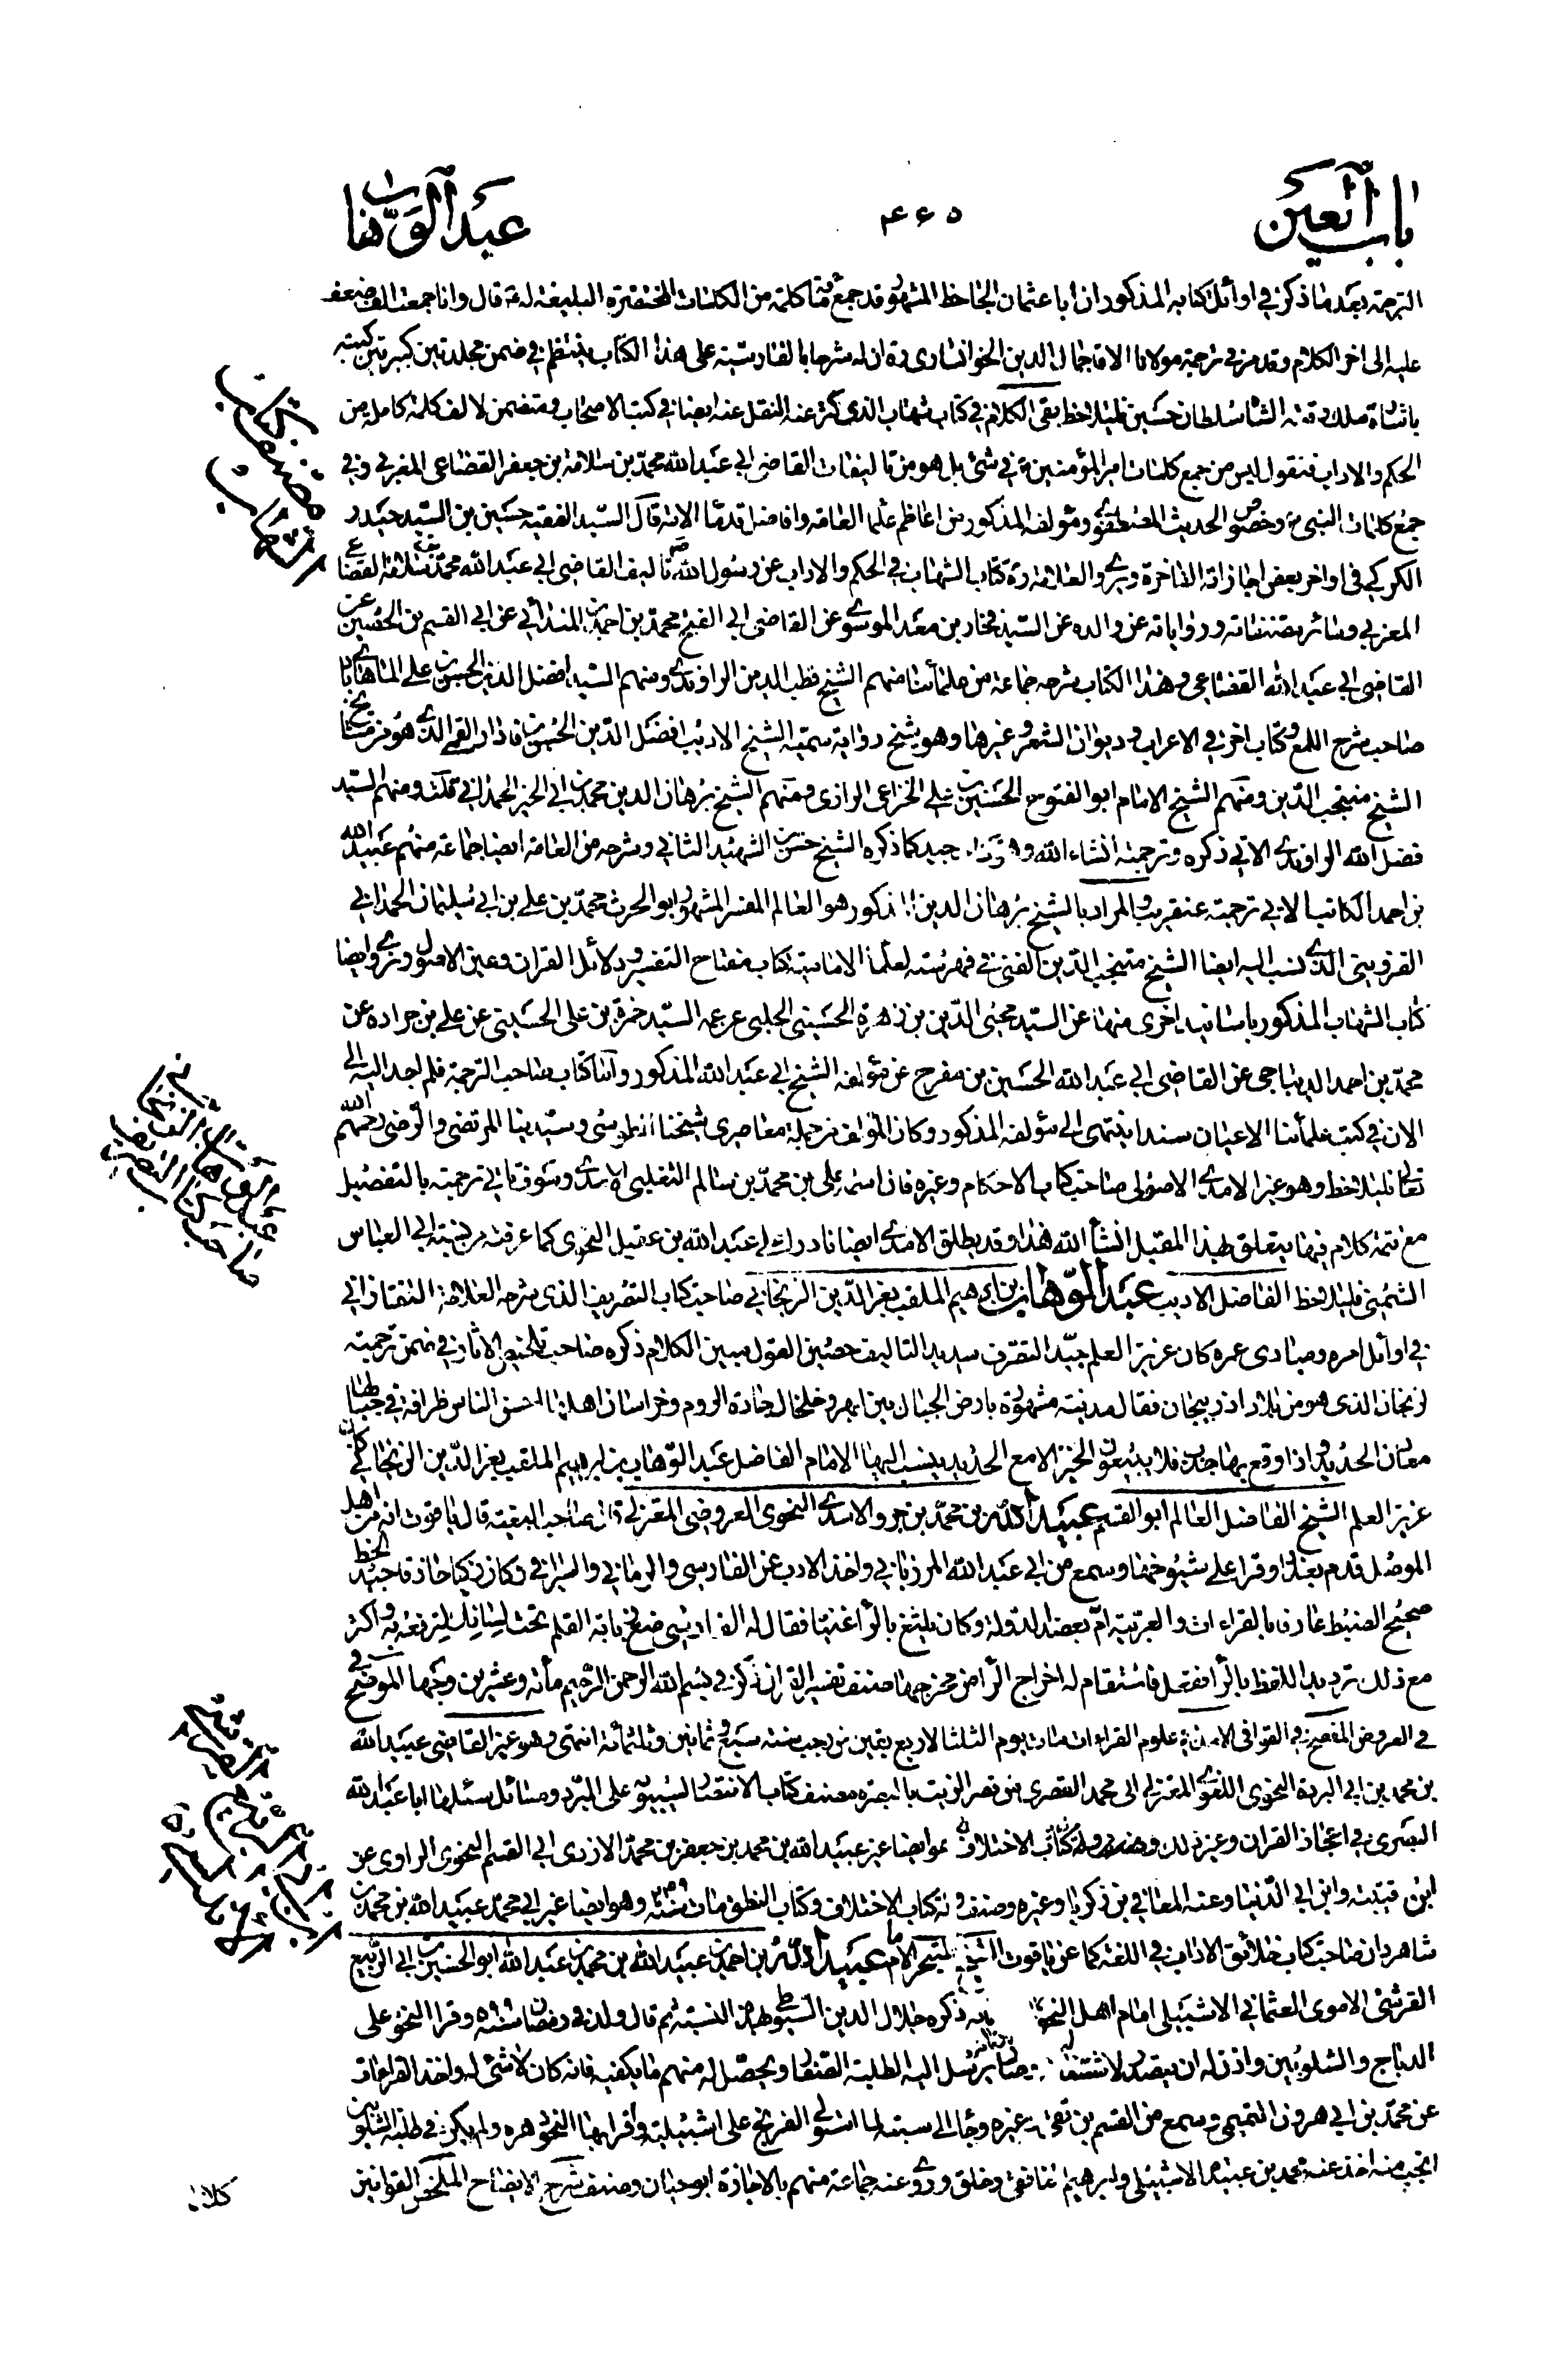 باب العين
۴۶۵
عبد الوهاب
الترجمة بعد ما ذكر في اوائل كتابه المذكور ان ابا عثمان الجاحظ المشهور قد جمع مائة كلمة من الكلمات المختصرة البليغة له قال وانا جمعت الف ضعف
عليه الى اخر الكلام وقد مر في ترجمة مولانا الاقا جمال الدين الخوانساري ره ان له شرحا بالفارسية على هذا الكتاب ينتظم في ضمن مجلدتين كبيرتين كتبه
باشارة سلطان وقته الشاه سلطان حسين فليلاحظ بقى الكلام في كتاب شهاب الذى كثر عنه النقل عنه ايضا في كتب الاصحاب ومتضمن لالف كلمة كاملة من
الحكم والاداب فنقول ليس من جمع كلمات امير المؤمنين في شئ بل هو من تاليفات القاضى ابي عبد الله محمد بن سلامة بن جعفر القضاعى المغربي وفي
جمع كلمات النبي ص وخصوص الحديث المصطفوى ومؤلفه المذكور من اعاظم علماء العامة وافاضل قدماء الامة قال السيد الفقيه حسين بن السيد حيدر
الكركي في اواخر بعض اجازاته الفاخرة ويروى العلامة ره كتاب الشهاب في الحكم والاداب عن رسول الله ص تاليف القاضى ابي عبد الله محمد بن سلامة القضاعى
المغربي وسائر مصنفاته ورواياته عن والده عن السيد فخار بن معد الموسوى عن القاضى ابي الفتح محمد بن احمد بن المندائي عن ابي القسم بن الحصين عن
القاضى ابي عبد الله القضاعي وهذا الكتاب شرحه جماعة من علمائنا منهم الشيخ قطب الدين الراوندى ومنهم السيد افضل الدين الحسن بن علي الماهابادى
صاحب شرح اللمع وكتاب اخر في الاعراب وديوان الشعر وغيرها وهو شيخ رواية سميه الشيخ الاديب افضل الدين الحسن بن فادار القمى الذى هو من مشايخ
الشيخ منتجب الدين ومنهم الشيخ الامام ابو الفتوح الحسين بن علي الخزاعى الرازى ومنهم الشيخ برهان الدين محمد بن ابي الخير الحمداني قلت ومنهم السيد
فضل الله الراوندى الاتي ذكره وترجمته انشاء الله جيد كما ذكره الشيخ حسن بن الشهيد الثاني وشرحه من العامة ايضا جماعة منهم عبيد الله
بن احمد الكاتب الاتي ترجمته عنقريب والمراد بالشيخ برهان الدين المذكور هو العالم المفسر المشهور ابو الحرث محمد بن علي بن ابي سليمان الحمداني
القزويني الذى نسب اليه ايضا الشيخ منتجب الدين القمى في فهرسته لعلماء الامامية كتاب مفتاح التفسير ودلائل القران وعين الاصول ويروى ايضا
كتاب الشهاب المذكور باسانيد اخرى منها عن السيد محيى الدين بن زهرة الحسيني الحلبي عن عمه السيد حمزة بن على الحسيني عن علي بن جراده عن
محمد بن احمد الديباجى عن القاضى ابي عبد الله الحسين بن مفرج عن مؤلفه الشيخ ابي عبد الله المذكور واما كتاب صاحب الترجمة فلم اجد اليه الى
الان في كتب علمائنا الاعيان سندا ينتهى الى مؤلفه المذكور وكان المؤلف من جملة معاصرى شيخنا الطوسى وسيدينا المرتضى والرضى رحمهم الله
تعالى فليلاحظ وهو غير الامدى الاصولى صاحب كتاب الاحكام وغيره فان اسمه علي بن محمد بن سالم الثعلبى الامدى وسوف ياتي ترجمته بالتفصيل
مع تتمة كلام فيها يتعلق بهذا المقبل انشاء الله هذا وقد يطلق الامدى ايضا نادرا على عبد الله بن عقيل النحوى كما عرفته من ابي العباس
الشمنى فليلاحظ الفاضل الاديب عبد الوهاب بن ابرهيم الملقب بعز الدين الزنجاني صاحب كتاب التصريف الذى شرحه العلامة التفتازاني
في اوائل امره ومبادى عمره كان عزيز العلم جيد التصرف سديد التاليف حصين القول مبين الكلام ذكره صاحب تلخيص الاثار في ضمن ترجمته
لزنجان الذى هو من بلاد اذربيجان فقال مدينة مشهورة بارض الجبال بين ابهر وخلخال جادة الروم وخراسان اهلها احسن الناس ظرافة في جبالها
معدن الحديد واذا وقع بها جدب فلا يبيعون الخبز الا مع الحديد ينسب اليها الامام الفاضل عبد الوهاب بن ابرهيم الملقب بعز الدين الزنجاني كان
عزيز العلم الشيخ الفاضل العالم ابو القسم عبيد الله بن محمد بن جرو الاسدى النحوى العروضي المعتزلي قال صاحب البغية قال ياقوت انه من اهل
الموصل قدم بغداد وقرا على شيوخها وسمع من ابي عبد الله المرزباني واخذ الادب عن الفارسى والرماني والسيرافي وكان ذكيا حاذقا جيد الخط
صحيح الضبط عارفا بالقراءات والعربية ام بعضد الدولة وكان يلثغ بالراء غينا فقال له الفارسى ضع ذبابة القلم تحت لسانك لترفعه به واكثر
مع ذلك ترديد اللفظ بالراء ففعل فاستقام له اخراج الراء من مخرجها صنف تفسير القران ذكر في بسم الله الرحمن الرحيم مأة وعشرين وجها الموضح في
العروض المفصح في القوافى الامد في علوم القراءات مات يوم الثلثا لاربع بقين من رجب سنة سبع وثمانين وثلثمائة انتهى وهو غير القاضى عبيد الله
بن محمد بن ابي البردة النحوى اللغوى المعتزلي الى محمد القصرى من قصر الزيت بالبصرة مصنف كتاب الانتصار لسيبويه على المبرد ومسائل سئلها ابا عبد الله
البصرى في اعجاز القران وغير ذلك وايضا غير عبيد الله بن محمد بن جعفر بن محمد الازدى ابي القسم النحوى الراوى عن
ابن قتيبة وابن ابي الدنيا وعنه المعافى بن زكريا وغيره وصنف كتاب الاختلاف وكتاب النطق مات سنة وهو ايضا غير ابي محمد عبيد الله بن محمد بن
شاهردان صاحب كتاب حدائق الاداب في اللغة كما عن ياقوت الشيخ المتبحر الامام عبيد الله بن احمد بن عبيد الله بن محمد بن عبد الله ابو الحسين بن ابي الربيع
القرشى الاموى العثماني الاشبيلى امام اهل النحو ذكره جلال الدين السيوطى بهذه النسبة ثم قال ولد في رمضان سنة وقرا النحو على
الدباج والشلوبين واذن له ان يتصدر لاشتغاله وصار يرسل اليه الطلبة الصغار ويحصل له منهم ما يكفيه فانه كان لا شئ له واخذ القراءات
عن محمد بن ابي هرون التميمى وسمع من القسم بن بقى وغيره وجاء الى سبتة لما استولى الفرنج على اشبيلية واقرا بها النحو دهره ولم يكن في طلبة الشلوبين
انجب منه اخذ عنه محمد بن عبيدة الاشبيلى وابرهيم الغافقى وخلق وروى عنه جماعة منهم بالاجازة ابو حيان وصنف شرح الايضاح الملخص القوانين
كلاهما
مصنف كتاب
الشهاب
عبد الوهاب الزنجاني
صاحب كتاب التصريف